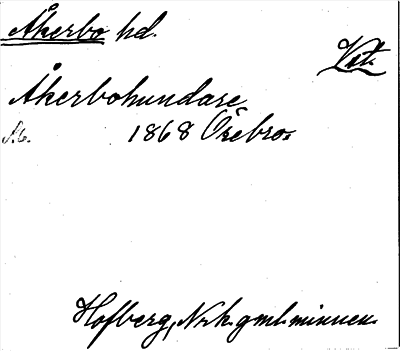 Åkerbo hd.
Vst.
Åkerbohundare
1868 Örebro.
Hofberg, Nrk. gml. minnen.